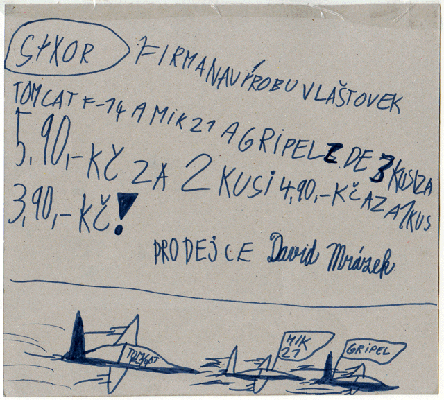 SYKOR FIRMA NA VÍROBU VLAŠTOVEK
TOMCAT F-14 A MIK 21 A GRIPEL ZDE 3 KUSI ZA
5,90,-KČ ZA 2 KUSI 4,90,-KČ A ZA 1 KUS
3,90,-KČ!
PRODEJCE David Mrázek
TOMCAT
MIK
21
GRIPEL